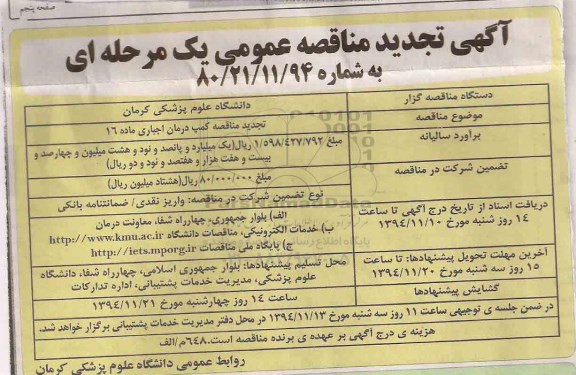 صفحه پنجم
آگهی تجدید مناقصه عمومی یک مرحله ای
به شماره ۸۰/۲۱/۱۱/۹۴
دستگاه مناقصه گزار
دانشگاه علوم پزشکی کرمان
موضوع مناقصه
تجدید مناقصه کمپ درمان اجباری ماده ۱۶
برآورد سالیانه
مبلغ ۱/۵۹۸/۴۲۷/۷۹۲ ریال(یک میلیارد و پانصد و نود و هشت میلیون و چهارصد و
بیست و هفت هزار و هفتصد و نود و دو ریال)
تضمین شرکت در مناقصه
مبلغ ۸۰/۰۰۰/۰۰۰ ریال(هشتاد میلیون ریال)
نوع تضمین شرکت در مناقصه: واریز نقدی/ ضمانتنامه بانکی
دریافت اسناد از تاریخ درج آگهی تا ساعت
۱۴ روز شنبه مورخ ۱۳۹۴/۱۱/۱۰
الف) بلوار جمهوری، چهارراه شفا، معاونت درمان
ب) خدمات الکترونیکی، مناقصات دانشگاه http://www.kmu.ac.ir
ج) پایگاه ملی مناقصات http://iets.mporg.ir
آخرین مهلت تحویل پیشنهادها: تا ساعت
۱۵ روز سه شنبه مورخ ۱۳۹۴/۱۱/۲۰
محل تسلیم پیشنهادها: بلوار جمهوری اسلامی، چهارراه شفا، دانشگاه
علوم پزشکی، مدیریت خدمات پشتیبانی، اداره تدارکات
گشایش پیشنهادها
ساعت ۱۴ روز چهارشنبه مورخ ۱۳۹۴/۱۱/۲۱
در ضمن جلسه ی توجیهی ساعت ۱۱ روز سه شنبه مورخ ۱۳۹۴/۱۱/۱۳ در محل دفتر مدیریت خدمات پشتیبانی برگزار خواهد شد.
هزینه ی درج آگهی بر عهده ی برنده مناقصه است.۶۴۸م/الف
روابط عمومی دانشگاه علوم پزشکی کرمان